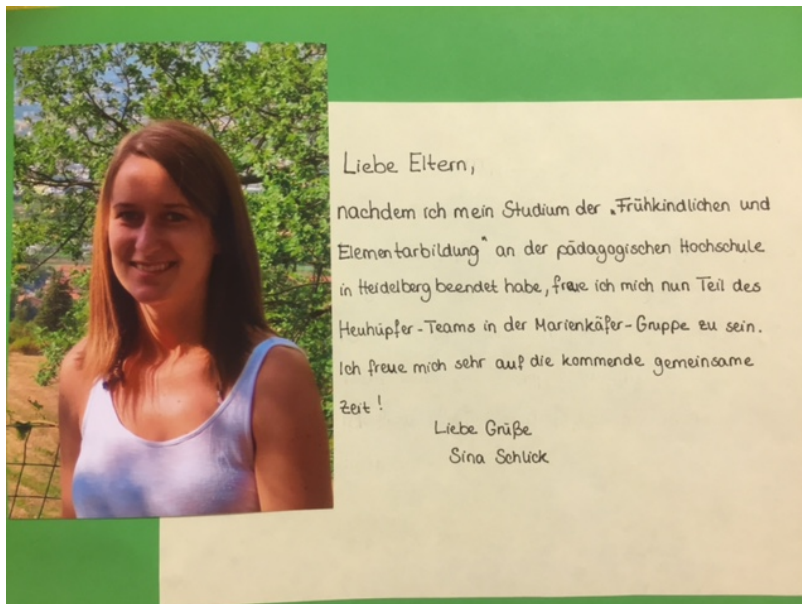 Liebe Eltern,
nachdem ich mein Studium der „Frühkindlichen und
Elementarbildung" an der pädagogischen Hochschule
in Heidelberg beendet habe, freue ich mich nun Teil des
Heuhüpfer-Teams in der Marienkäfer-Gruppe zu sein.
Ich freue mich sehr auf die kommende gemeinsame
Zeit!
Liebe Grüße
Sina Schlick